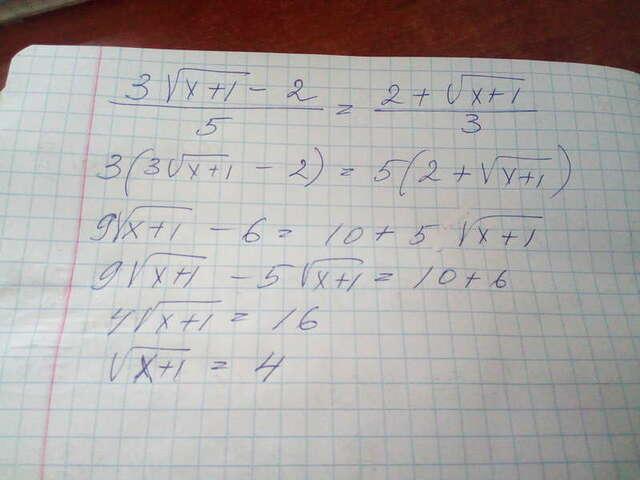 (3√(x+1) - 2)/5 = (2 + √(x+1))/3
3(3√(x+1) - 2) = 5(2 + √(x+1))
9√(x+1) - 6 = 10 + 5 √(x+1)
9√(x+1) - 5√(x+1) = 10 + 6
4√(x+1) = 16
√(x+1) = 4